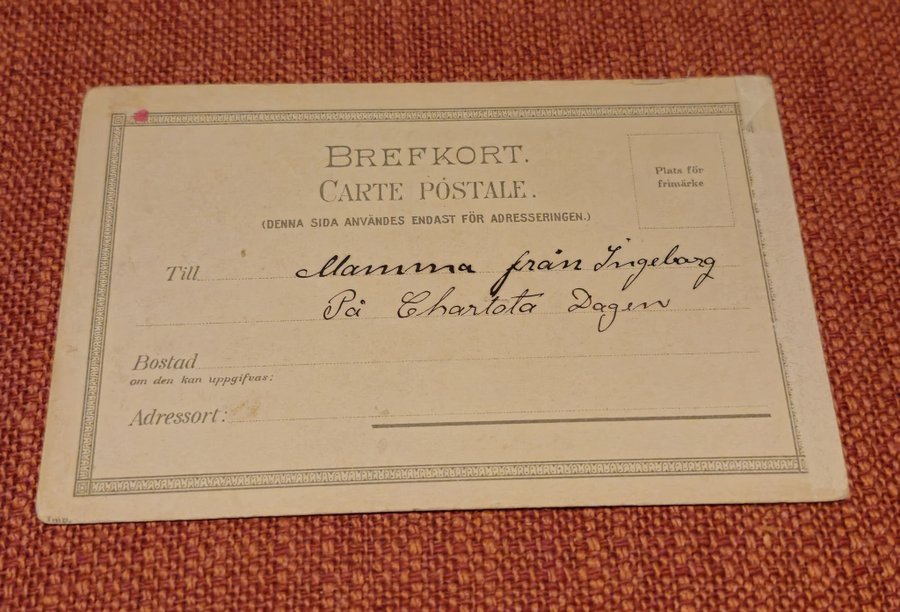 BREFKORT.
CARTE PÓSTALE.
(DENNA SIDA ANVÄNDES ENDAST FÖR ADRESSERINGEN.)
Plats för
frimärke
Till
Mamma från Ingeborg
På Charlota Dagen
Bostad
om den kan uppgifvas:
Adressort: